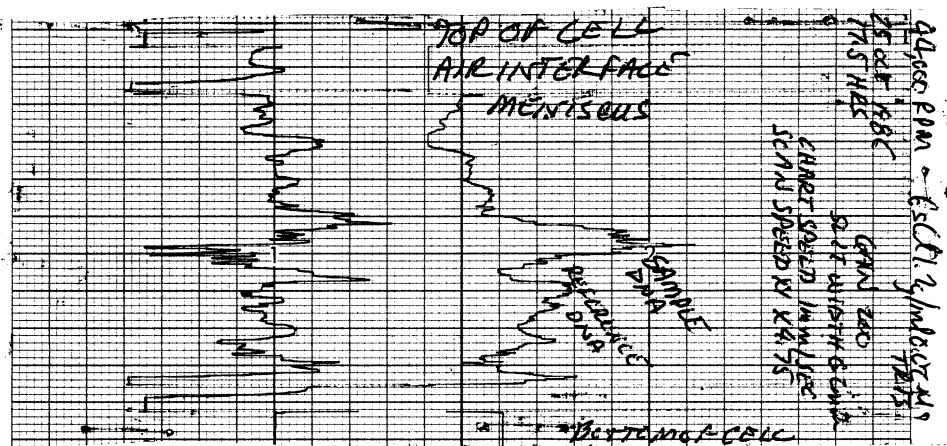 TOP OF CELL
AIR INTERFACE
MENISCUS
SAMPLE
DNA
REFERENCE
DNA
BOTTOM OF CELL
44,000 RPM
25 OCT
17.5 HRS
GAIN 200
SLIT WIDTH
CHART SPEED 1mm/SEC
SCAN SPEED
TRIS